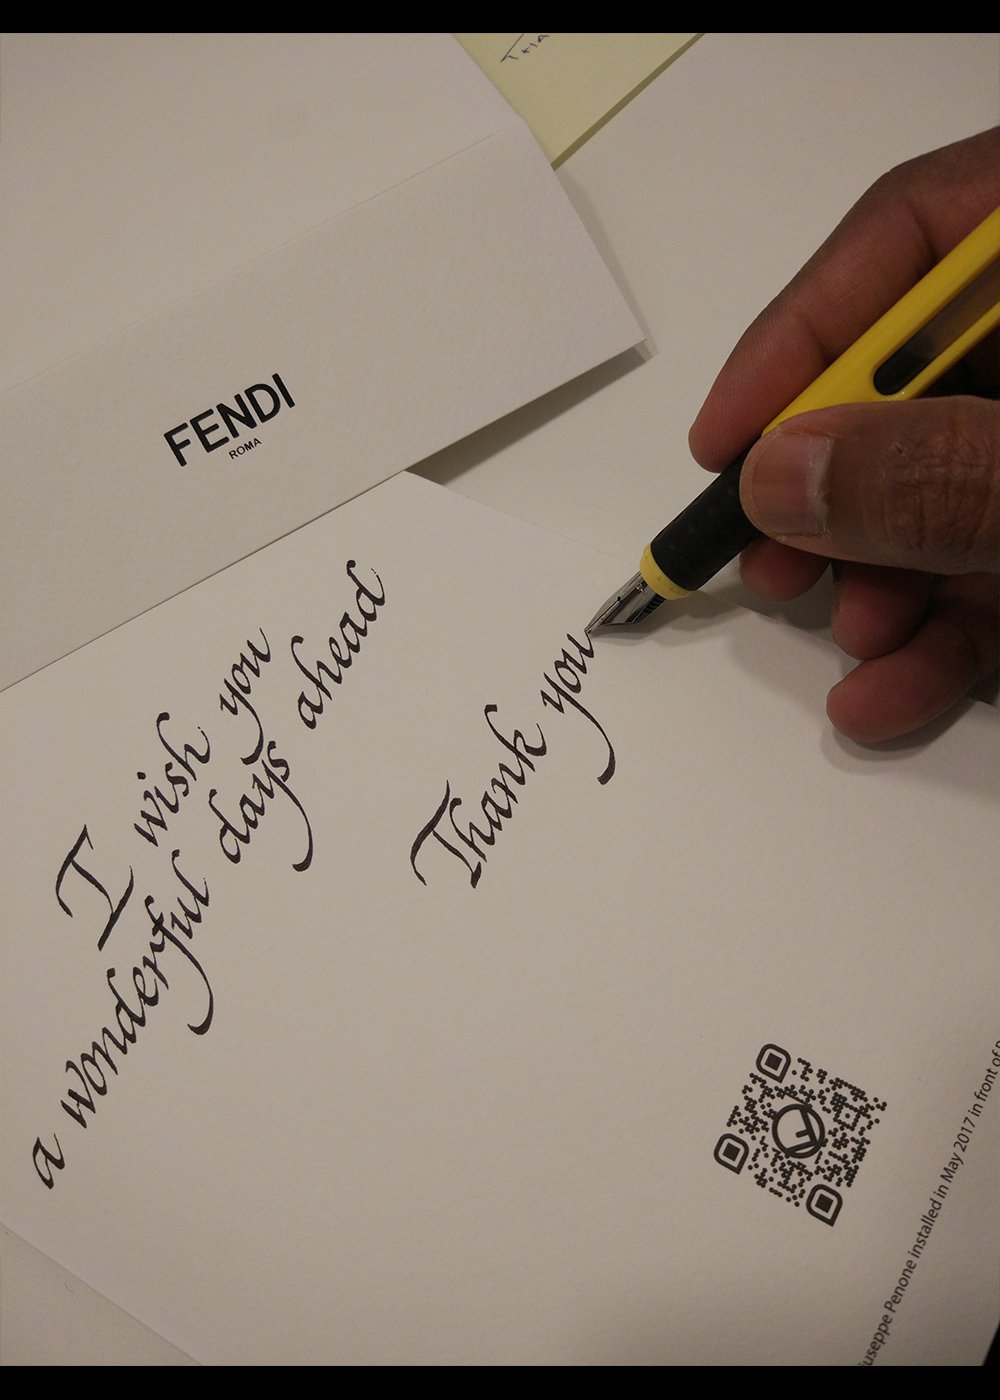 FENDI
ROMA
I wish you
a wonderful days ahead
Thank you
iuseppe Penone installed in May 2017 in front of